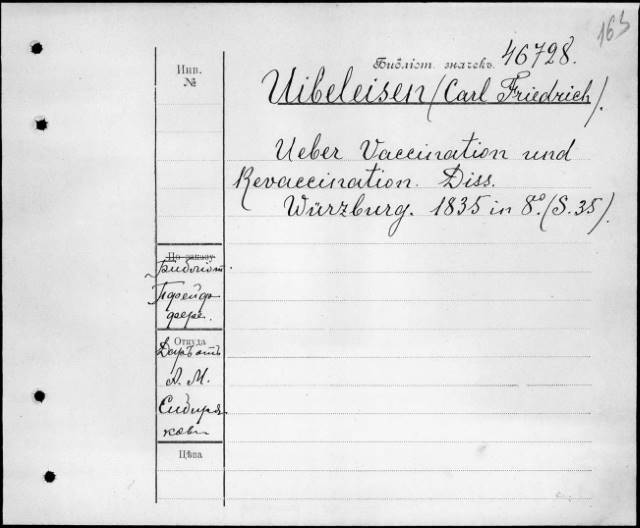 163
Библіот. значекъ. 46728.
Инв.
№
Uibeleisen (Carl Friedrich).
Ueber Vaccination und
Revaccination. Diss.
Würzburg. 1835 in 8º. (S. 35).
По заказу
Пфейф
фера.
Откуда
Даръ отъ
А. М.
Сибиря
кова
Цѣна